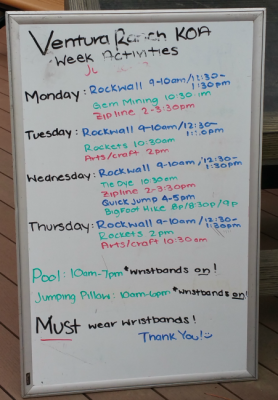 Ventura Ranch KOA
Week Activities
Monday: Rockwall 9-10am/12:30-
1:30pm
Gem Mining 10:30am
Zipline 2-3:30pm
Tuesday: Rockwall 9-10am/12:30-
1:30pm
Rockets 10:30am
Arts/craft 2pm
Wednesday: Rockwall 9-10am/12:30-
1:30pm
Tie Dye 10:30am
Zipline 2-3:30pm
Quick Jump 4-5pm
Bigfoot Hike 8p/8:30p/9p
Thursday: Rockwall 9-10am/12:30-
1:30pm
Rockets 2pm
Arts/craft 10:30am
Pool: 10am-7pm *wristbands on!
Jumping Pillow: 10am-6pm *wristbands on!
Must wear wristbands!
Thank You!